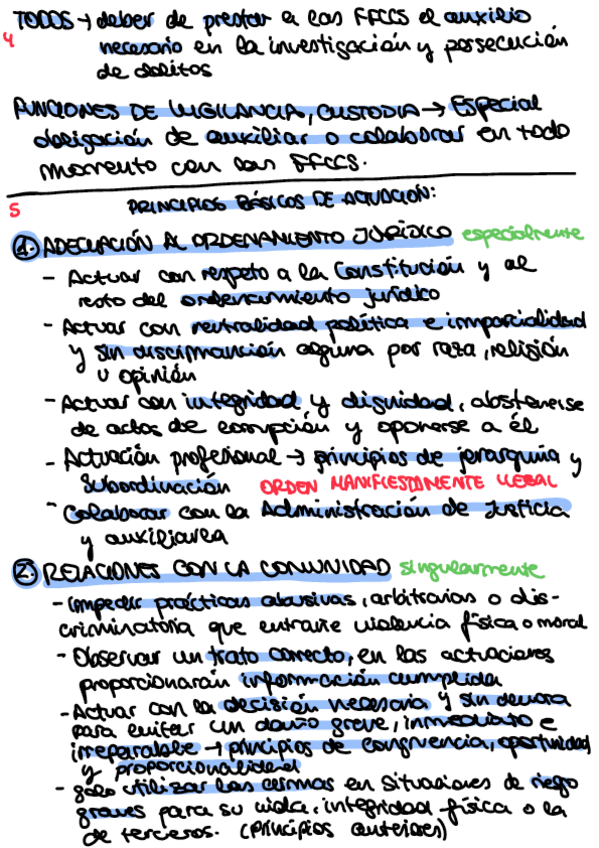 TODOS → deber de prestar a las FFCCS el auxilio
4
necesario en la investigación y persecución
de delitos
FUNCIONES DE VIGILANCIA, CUSTODIA → Especial
obligación de auxiliar o colaborar en todo
momento con las FFCCS.
5
PRINCIPIOS BÁSICOS DE ACTUACIÓN:
1. ADECUACIÓN AL ORDENAMIENTO JURÍDICO especialmente
- Actuar con respeto a la Constitución y al
resto del ordenamiento jurídico
- Actuar con neutralidad política e imparcialidad
y sin discriminación alguna por raza, religión
u opinión
- Actuar con integridad y dignidad, abstenerse
de actos de corrupción y oponerse a él
- Actuación profesional → principios de jerarquía y
subordinación ORDEN MANIFIESTAMENTE ILEGAL
- Colaborar con la Administración de Justicia
y auxiliarla
2. RELACIONES CON LA COMUNIDAD singularmente
- Impedir prácticas abusivas, arbitrarias o dis-
criminatoria que entrañe violencia física o moral
- Observar un trato correcto, en las actuaciones
proporcionarán información cumplida
- Actuar con la decisión necesaria y sin demora
para evitar un daño grave, inmediato e
irreparable → principios de congruencia, oportunidad
y proporcionalidad
- Solo utilizar las armas en situaciones de riesgo
graves para su vida, integridad física o la
de terceros. (Principios anteriores)